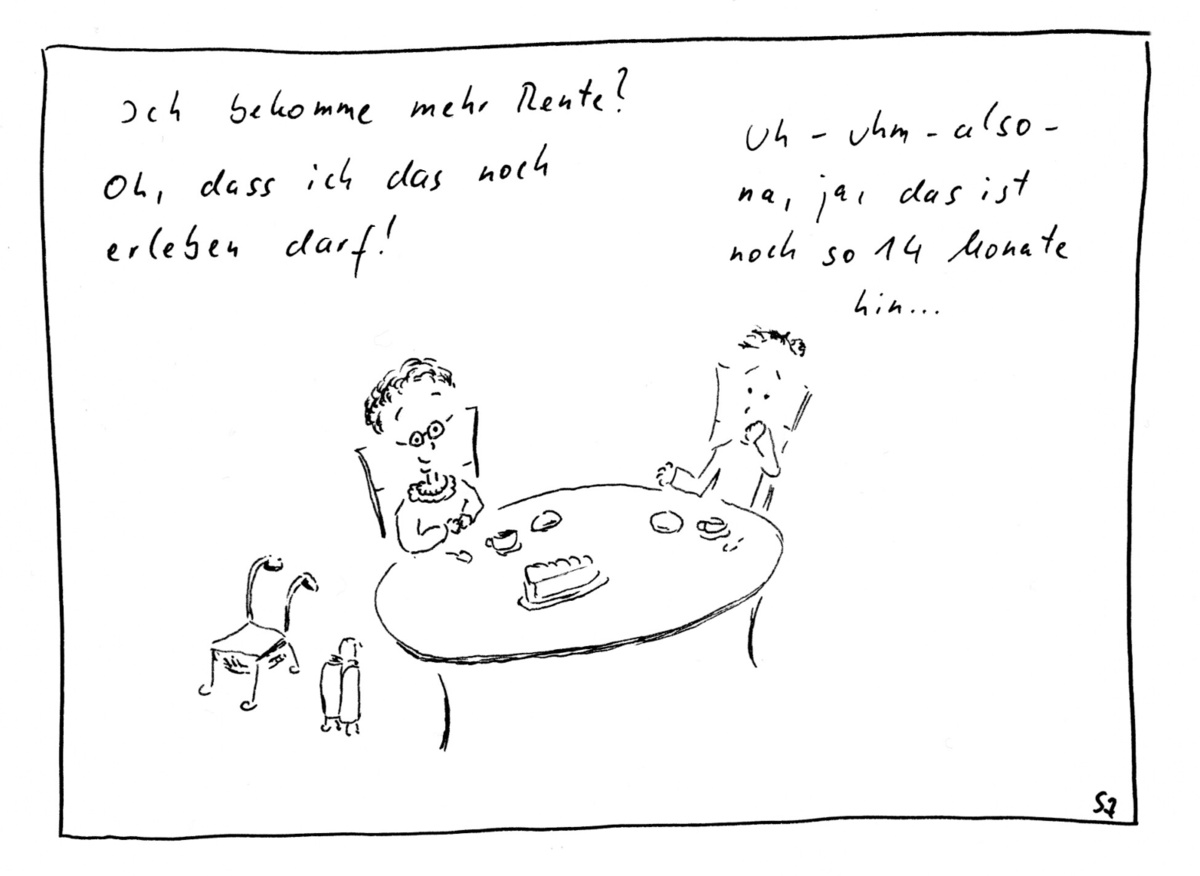 Ich bekomme mehr Rente?
Oh, dass ich das noch
erleben darf!
Uh - uhm - also -
na, ja, das ist
noch so 14 Monate
hin...